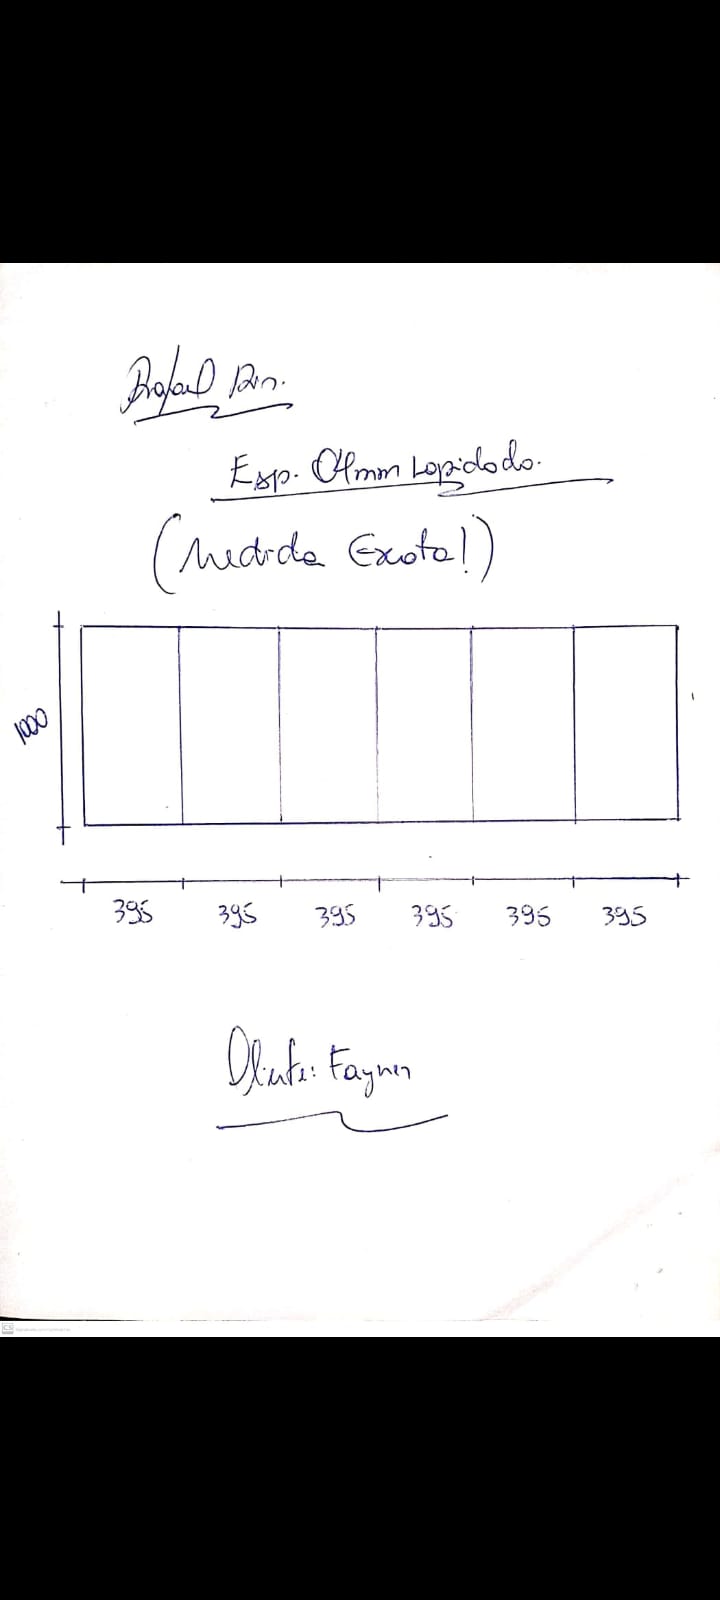 Rafael
Esp. 04mm Lapidado.
(Medida Exata!)
1000
395 395 395 395 395 395
Fayner
CS